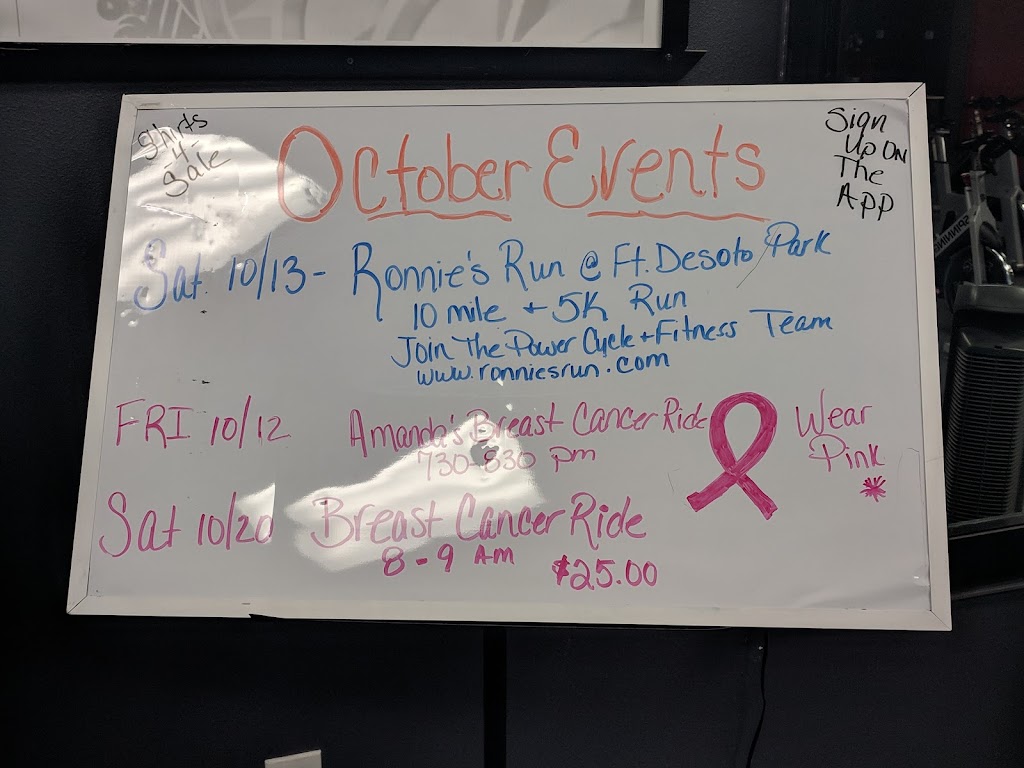 Shirts
4
Sale
October Events
Sign
Up On
The
App
Sat. 10/13 - Ronnie's Run @ Ft. Desoto Park
10 mile + 5K Run
Join The Power Cycle + Fitness Team
www.ronniesrun.com
FRI 10/12 Amanda's Breast Cancer Ride
730-830 pm
Wear
Pink
Sat 10/20 Breast Cancer Ride
8-9 AM $25.00
SPINNING